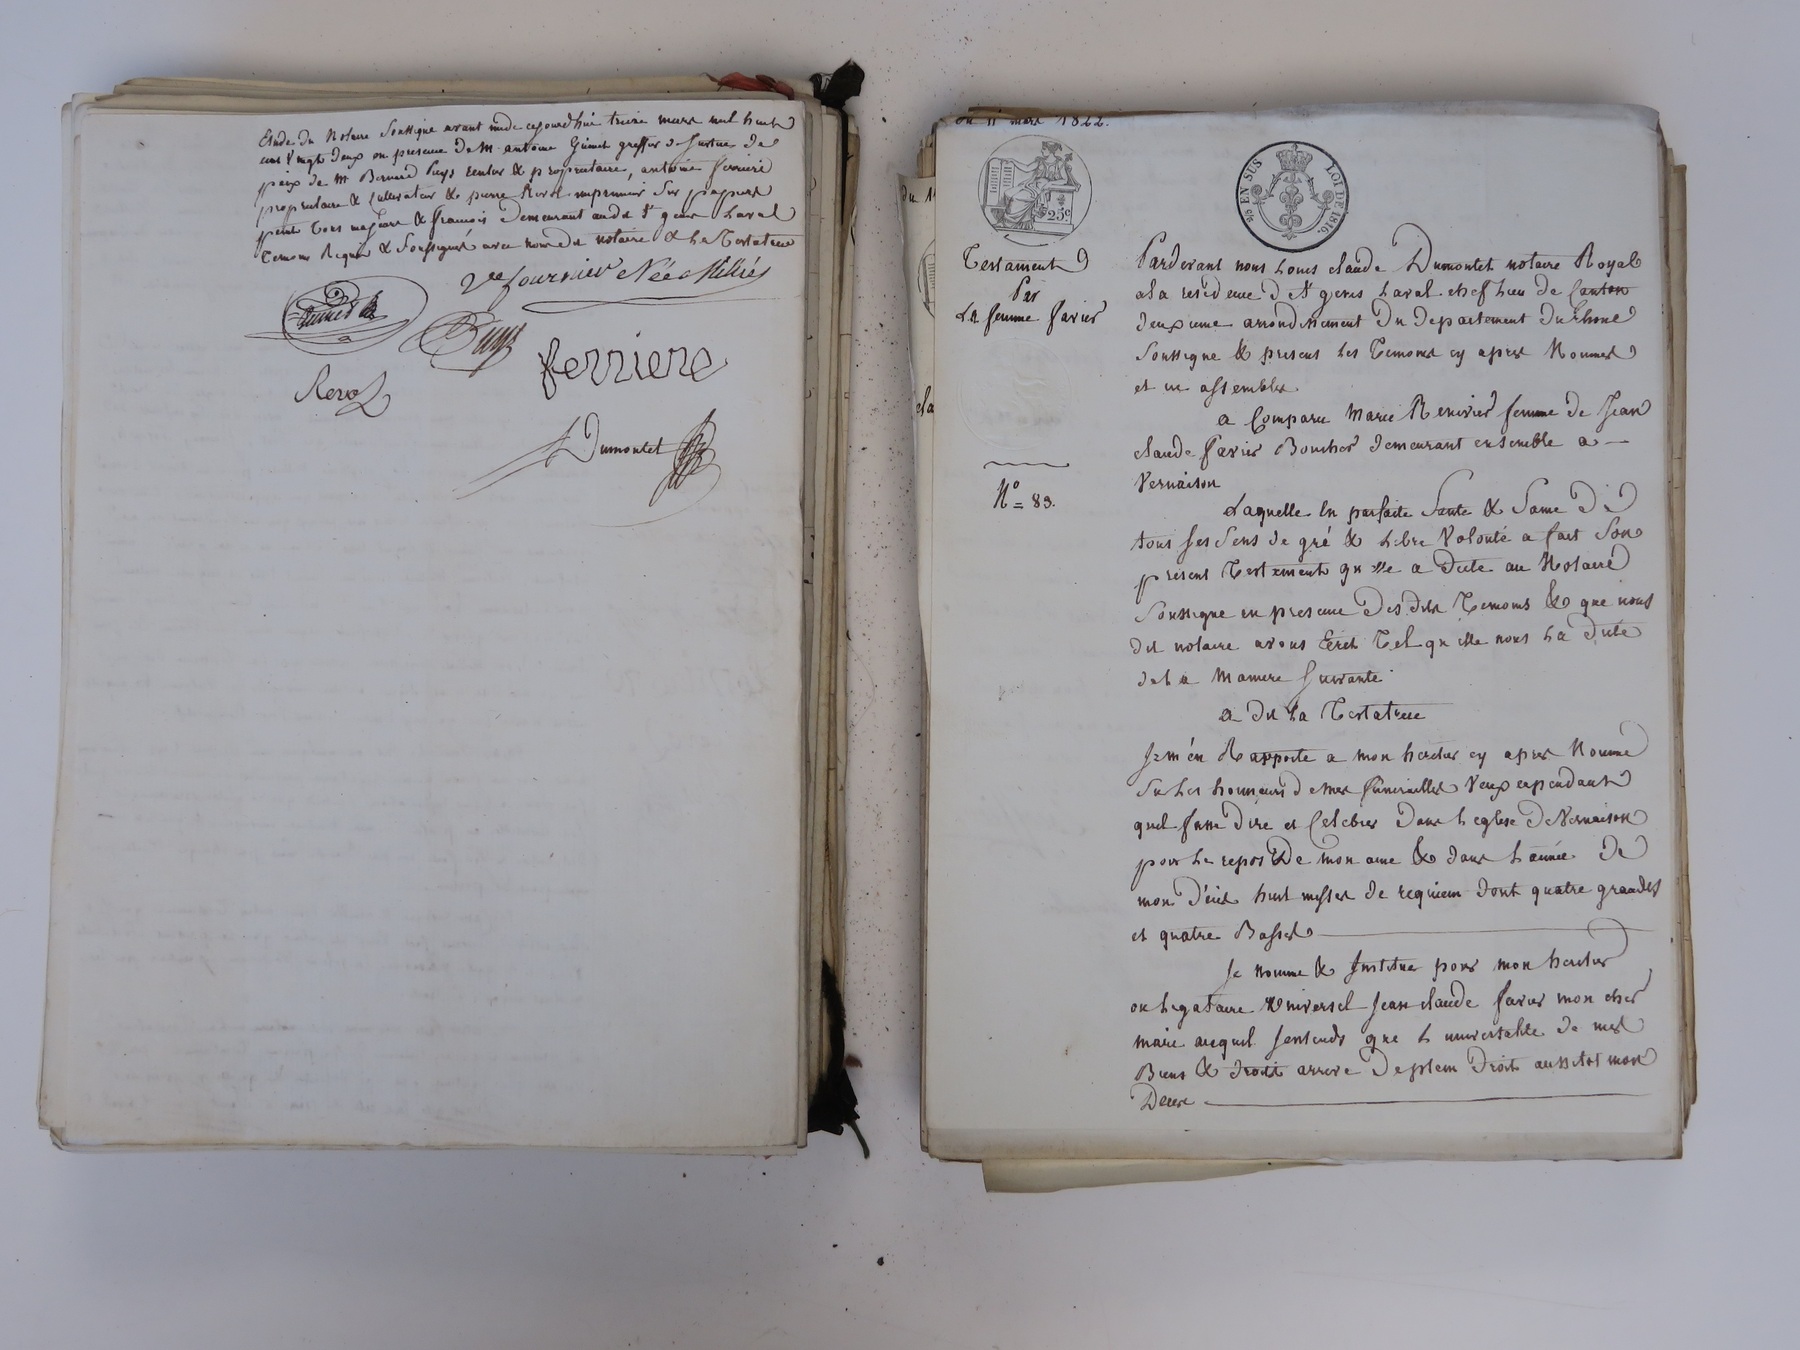 Etude du Notaire Soussigné avant midi cejourdhui treize mars mil huit
cent vingt deux en presence de Mr antoine greffier de Justice de
paix de Mr Bernard Puys rentier & proprietaire, antoine ferriere
proprietaire & Cultivateur & pierre Revol imprimeur sur papiers
peint tous majeurs & francois demeurant audit St genis Laval
temoins Requis & Soussignés avec nous dit notaire & la Testatrice
Vve fournier Née
Puys
ferriere
Revol
Dumontet
du 11 mars 1822.
25c
EN SUS LOI DE 1816.
Testament
Par
La femme favier
No = 83.
Pardevant nous Louis claude Dumontet notaire Royal
a la residence de St genis Laval chef lieu de Canton
deuxieme arrondissement du departement du rhone
Soussigné & presens les temoins cy apres Nommés
et en assemblés
a Comparu Marie Renivier femme de Jean
claude favier Boucher demeurant ensemble a —
Vernaison
Laquelle En parfaite Santé & Saine de
tous ses Sens de gré & Libre Volonté a fait Son
present Testement qu'elle a dicté au Notaire
Soussigné en presence des dits Temoins & que nous
dit notaire avons Ecrit Tel qu'elle nous L'a dicté
de La Maniere Suivante
a dit La Testatrice
Je m'en Rapporte a mon heritier cy apres Nommé
Sur Les honneurs de mes funerailles Veux cependant
quil fasse dire et Celebrer Dans L'eglise de Vernaison
pour Le repos De mon ame & dans L'année De
mon décés huit messes de requiem dont quatre grandes
et quatre Basses
Je Nomme & Institue pour mon heritier
ou Legataire Universel Jean claude favier mon cher
mari auquel Jentends que L'universalité de mes
Biens & droits arrive De plein Droit aussitot mon
Deces